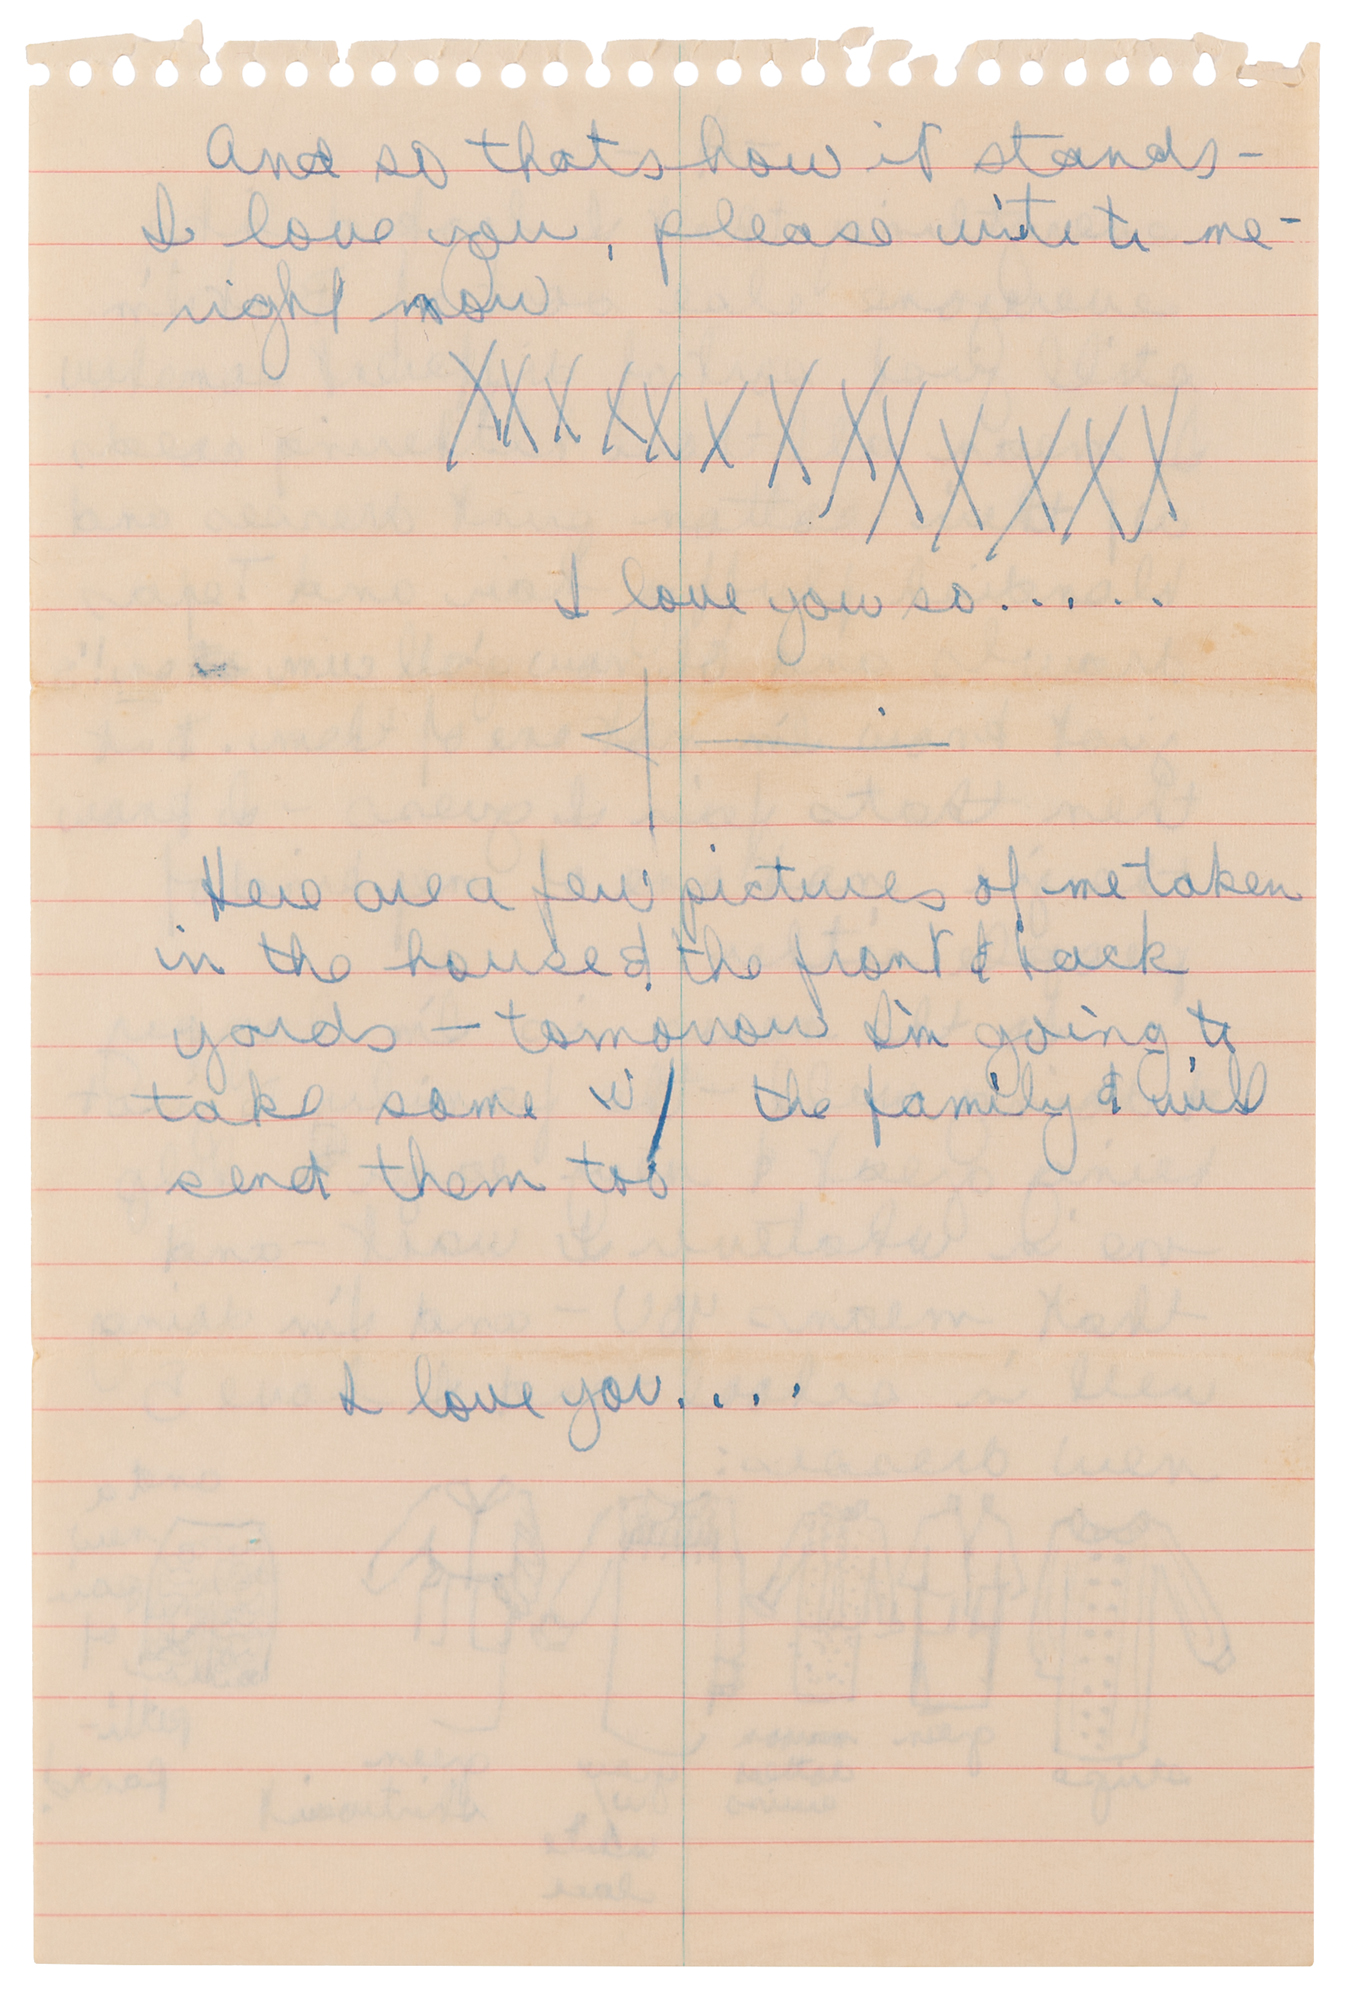 And so thats how it stands -
I love you, please write to me -
right now
XXXXXXXXXXXXX
I love you so......
Here are a few pictures of me taken
in the house & the front & back
yards - tomorrow I'm going to
take some w/ the family & will
send them too
I love you....